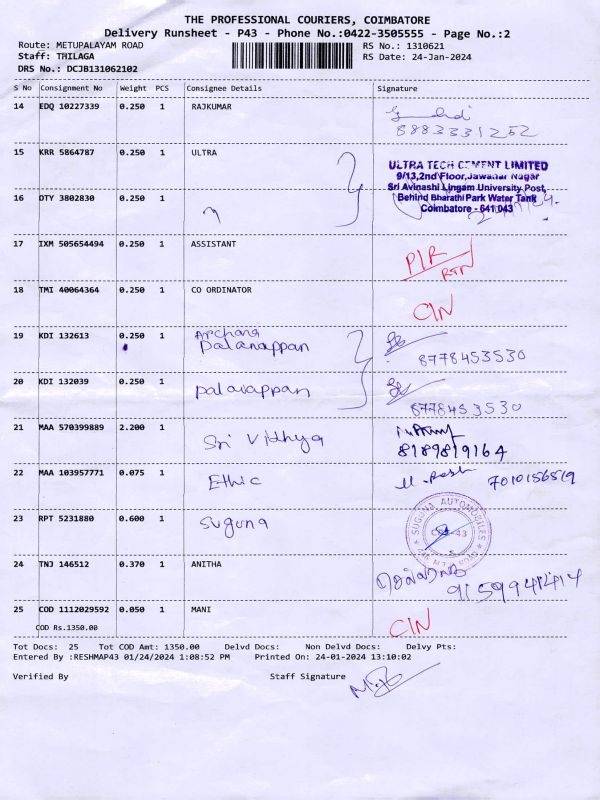 THE PROFESSIONAL COURIERS, COIMBATORE
Delivery Runsheet - P43 - Phone No.:0422-3505555 - Page No.:2
Route: METUPALAYAM ROAD RS No.: 1310621
Staff: THILAGA RS Date: 24-Jan-2024
DRS No.: DCJB131062102
S No Consignment No Weight PCS Consignee Details Signature
14 EDQ 10227339 0.250 1 RAJKUMAR
8883331252
15 KRR 5864787 0.250 1 ULTRA
ULTRA TECH CEMENT LIMITED
9/13,2nd Floor,Jawahar Nagar
Sri Avinashi Lingam University Post,
16 DTY 3802830 0.250 1 Behind Bharathi Park Water Tank
Coimbatore - 641 043
17 IXM 505654494 0.250 1 ASSISTANT P/R
RTN
18 TMI 40064364 0.250 1 CO ORDINATOR
C/N
19 KDI 132613 0.250 1 Archana
Palanappan
8778453530
20 KDI 132039 0.250 1 Palanappan
8778453530
21 MAA 570399889 2.200 1 Sri Vidhya
8189819164
22 MAA 103957771 0.075 1 Ethic 7010156519
23 RPT 5231880 0.600 1 Suguna
SUGUNA AUTOMOBILES
24 TNJ 146512 0.370 1 ANITHA
9159941414
25 COD 1112029592 0.050 1 MANI C/N
COD Rs.1350.00
Tot Docs: 25 Tot COD Amt: 1350.00 Delvd Docs: Non Delvd Docs: Delvy Pts:
Entered By :RESHMAP43 01/24/2024 1:08:52 PM Printed On: 24-01-2024 13:10:02
Verified By Staff Signature